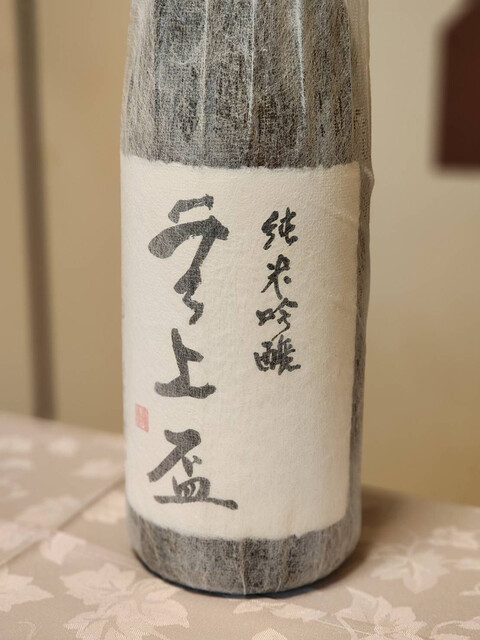 純米吟醸
無上盃